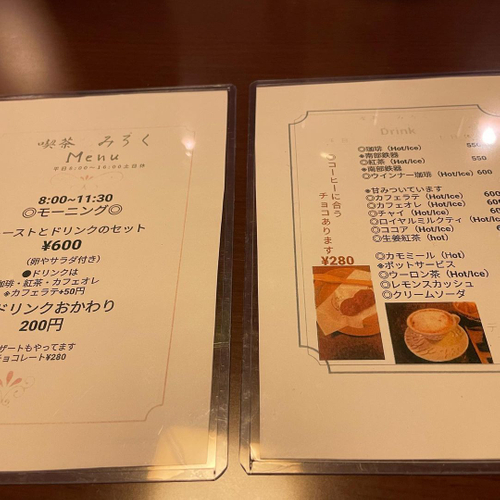 喫茶 みろく
Menu
平日8:00~16:00土日休
8:00~11:30
◎モーニング◎
ーストとドリンクのセット
¥600
(卵やサラダ付き)
●ドリンクは
珈琲・紅茶・カフェオレ
※カフェラテ+50円
ドリンクおかわり
200円
ザートもやってます
チョコレート¥280
Drink
◎珈琲 (Hot/Ice) 550
※南部鉄器
◎紅茶 (Hot/Ice) 550
※南部鉄器
◎ウインナー珈琲 (Hot/Ice) 600
※甘みついています
◎カフェラテ (Hot/Ice) 600
◎カフェオレ (Hot/Ice) 600
◎チャイ (Hot/Ice)
◎ロイヤルミルクティ (Hot/Ice)
◎ココア (Hot/Ice)
◎生姜紅茶 (hot)
◎カモミール (Hot)
※ポットサービス
◎ウーロン茶 (Hot/Ice)
◎レモンスカッシュ
◎クリームソーダ
◎コーヒーに合う
チョコあります
¥280